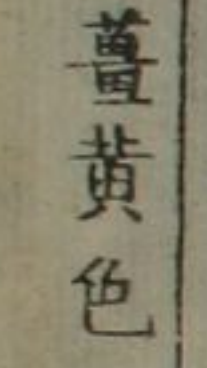 薑黄色